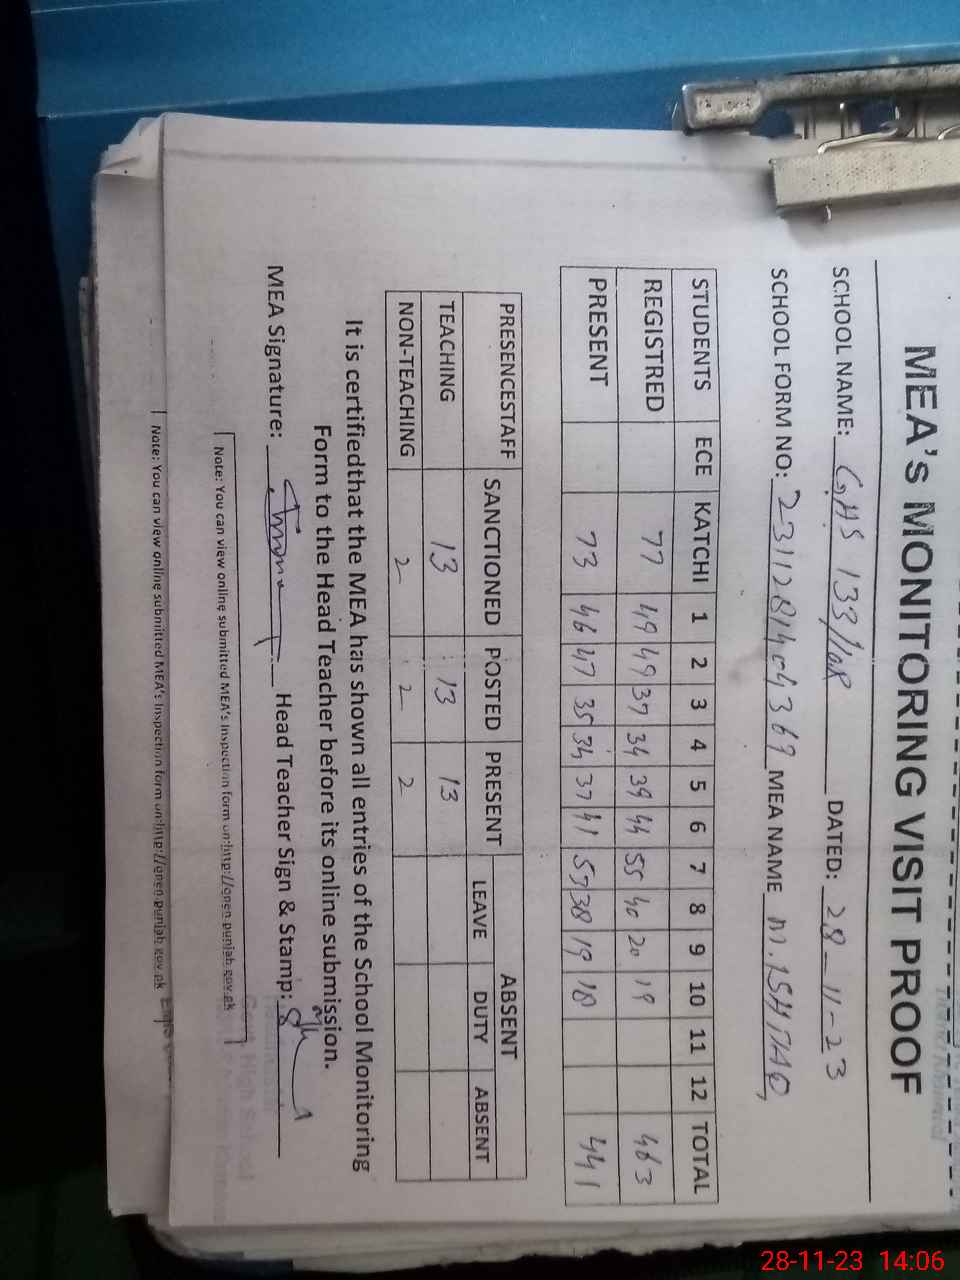 MEA's MONITORING VISIT PROOF
SCHOOL NAME: GHS 133/10R DATED: 28-11-23
SCHOOL FORM NO: MEA NAME M. ISHTAQ,
STUDENTS ECE KATCHI 1 2 3 4 5 6 7 8 9 10 11 12 TOTAL
REGISTRED 77 49 49 37 34 39 44 55 40 20 19 463
PRESENT 73 46 47 35 34 37 41 38 19 18 441
PRESENCESTAFF SANCTIONED POSTED PRESENT ABSENT
LEAVE DUTY ABSENT
TEACHING 13 13 13
NON-TEACHING 2 2 2
It is certifiedthat the MEA has shown all entries of the School Monitoring
Form to the Head Teacher before its online submission.
MEA Signature: Head Teacher Sign & Stamp:
Note: You can view online submitted MEA's Inspection form on:http://open.punjab.gov.pk
Note: You can view online submitted MEA's Inspection form on:http://open.punjab.gov.pk
28-11-23 14:06